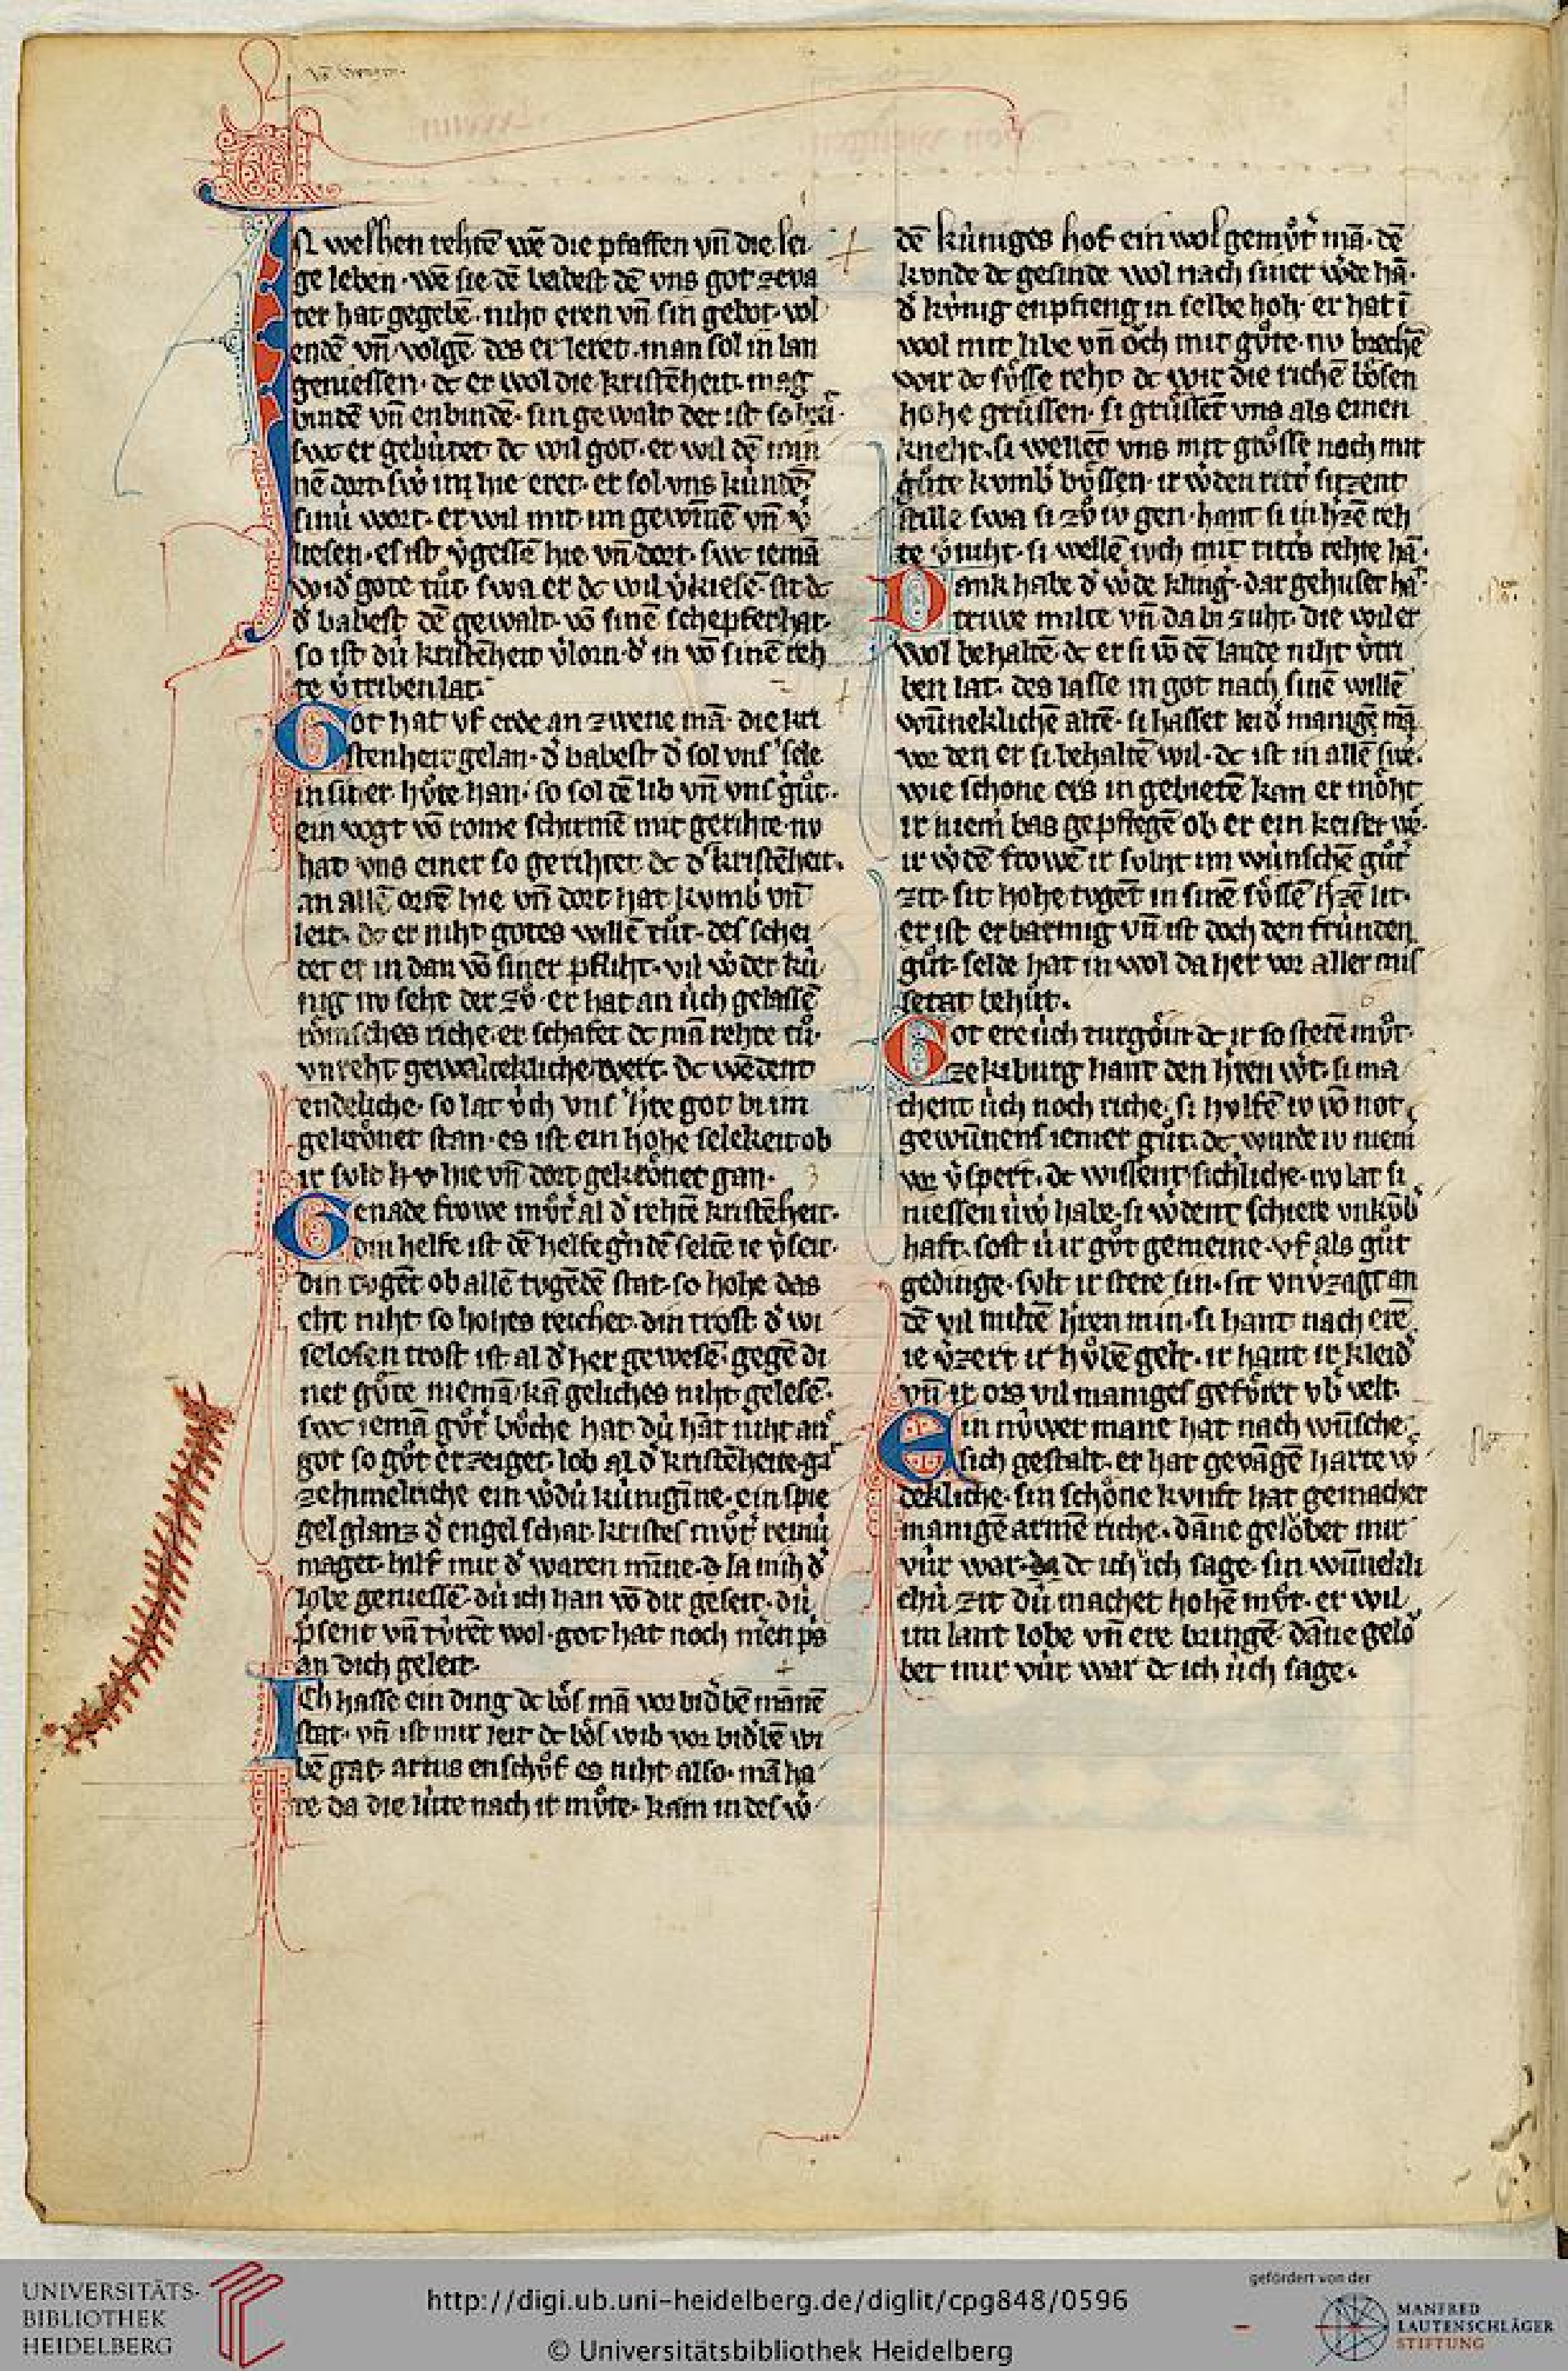 IN welhen rehtē wē die pfaffen vn̄ die lei
ge leben · wē sie dē babest dē vns got zeva
ter hat gegebē · niht eren vn̄ sin gebot · vol
endē vn̄ volgē des er leret · man sol in lan
geniessen · dc er wol die kristēheit mag
bindē vn̄ enbindē · sin gewalt der ist so
swc er gebútet dc wil got · er wil dē min
nē dort · hie eret · er sol vns kúndē
sinú wort · er wil mit im gewīnē vn̄ v̓
liesen · es ist v̓gessē hie vn̄ dort · swc iemā
wid̓ gote tůt · swa er dc wil v̓kiesē · sit dc
d̓ babest dē gewalt · vō sinē schepfer hat ·
so ist dú kristēheit v̓lorn · d̓ in vō sinē reh
te v̓triben lat ·
Got hat vf erde an zwene mā · die kri
stenheit gelan · d̓ babest d̓ sol vnſ̓ sele
in siner hůte han · so sol dē lib vn̄ vnſ̓ gůt ·
ein vogt vō rome schirmē mit gerihte · nv
hat vns einer so gerihtet dc d̓ kristēheit ·
an allē ortē hie vn̄ dort hat kvmb̓ vn̄
leit · dc er niht gotes willē tůt · des schei
det er in dan vō siner pfliht · vil w̓der kú
nig nv seht der zů · er hat an úch gelassē
rômsches riche · er schafet dc mā rehte tů ·
vnreht gewaltekliche wert · dc wēdent
endeliche · so lat ôch vnſ̓ h̓re got bi im
gekrônet stan · es ist ein hohe selekeit ob
ir svlt hie vn̄ dort gekrônet gan ·
Genade frowe můt̓ al d̓ rehtē kristēheit ·
din helfe ist dē helfe g̓ndē seltē ie v̓seit ·
din tvgēt ob allē tvgēdē stat · so hohe das
eht niht so hohes reichet · din trost d̓ wi
selosen trost ist al d̓ her gewesē · gegē di
ner gůte niemā kā geliches niht gelesē ·
swc iemā gůt̓ bůche hat · dú hāt niht an̓
got so gůt erzeiget · lob al d̓ kristēheite · gā
ze himelriche ein w̓dú kúnigīne · ein spie
gelglanz d̓ engel schar · kristes můt̓ reinú
maget · hilf mir d̓ waren mīne · la mih d̓
lobe geniessē · dú ich han vō dir geseit · dú
an dich geleit ·
Ich hasse ein ding dc bôs mā vor bid̓bē mānē
stat · vn̄ ist mir leit dc bôs wib vor bid̓bē wi
bē gat · artus enschůf es niht also · mā ha
te da die lúte nach ir můte · kam in des w̓
dē kúniges hof ein wol gemůt̓ mā · dē
kvnde dc gesinde wol nach siner w̓de hā ·
d̓ kúnig enpfieng in selbe hoh · er hat ī
wol mit libe vn̄ ôch mit gůte · nv brechē
wir dc sússe reht · dc wir die richē bôsen
hohe grússen · si grússēt vns als einen
kneht · si wellēt vns mit grôsse noch mit
gůte kvmb̓ bůssen · ir w̓den ritt̓ sitzent
stille swa si zů iv gen · hant si iu h̓zē reh
te v̓niht · si wellē ivch mit ritt̓s rehte hā ·
Dank habe d̓ w̓de kling̓ · dar gehuset hā
trúwe milte vn̄ da bi zuht · die wil er
wol behaltē · dc er si vō dē lande niht v̓tri
ben lat · des lasse in got nach sinē willē
wūneklichē altē · si hasset leid̓ manigē mā
vor den er si behaltē wil · dc ist in allē swe ·
wie schone ers in gebietē kan er môht
ir niem̄ bas gepflegē ob er ein keiser we ·
ir w̓dē frowē ir svlnt im wúnschē gůt̓
zit · sit hohe tvgēt in sinē sússē h̓zē lit ·
er ist erbarmig vn̄ ist doch den frúnden
gůt · selde hat in wol da her vor aller mis
setat behůt ·
Got ere úch turgôur dc ir so stetē můt ·
ze kiburg hant den h̓ren w̓t · si ma
chent úch noch riche · si hvlfē iv vō not
gewūnens iemer gůt · dc wurde iv niem̄
vor v̓spert · dc wissent sichliche · nv lat si
niessen úw̓ habe · si w̓dent schiere vnkvb̓
haft · sost úwer gůt gemeine · vf als gůt
gedinge · svlt ir stete sin · sit vnv̓zagt an
dē vil miltē h̓ren min · si hant nach erē
ie v̓zert ir hůbē gelt · ir hant ir kleid̓
vn̄ ir ors vil maniges gefůret vb̓ velt ·
Ein núwer mane hat nach wūsche
sich gestalt · er hat gevāgē harte w̓
dekliche · sin schône kvnft hat gemachet
manigē armē riche · dāne gelôbet mir
vúr war · dc ich ich sage · sin wūnekli
chú zit dú machet hohē můt · er wil
im lant lobe vn̄ ere bringē · dāne gelô
bet mir vúr war dc ich úch sage ·
UNIVERSITÄTS-
BIBLIOTHEK
HEIDELBERG
http://digi.ub.uni-heidelberg.de/diglit/cpg848/0596
© Universitätsbibliothek Heidelberg
gefördert von der
MANFRED
LAUTENSCHLÄGER
STIFTUNG